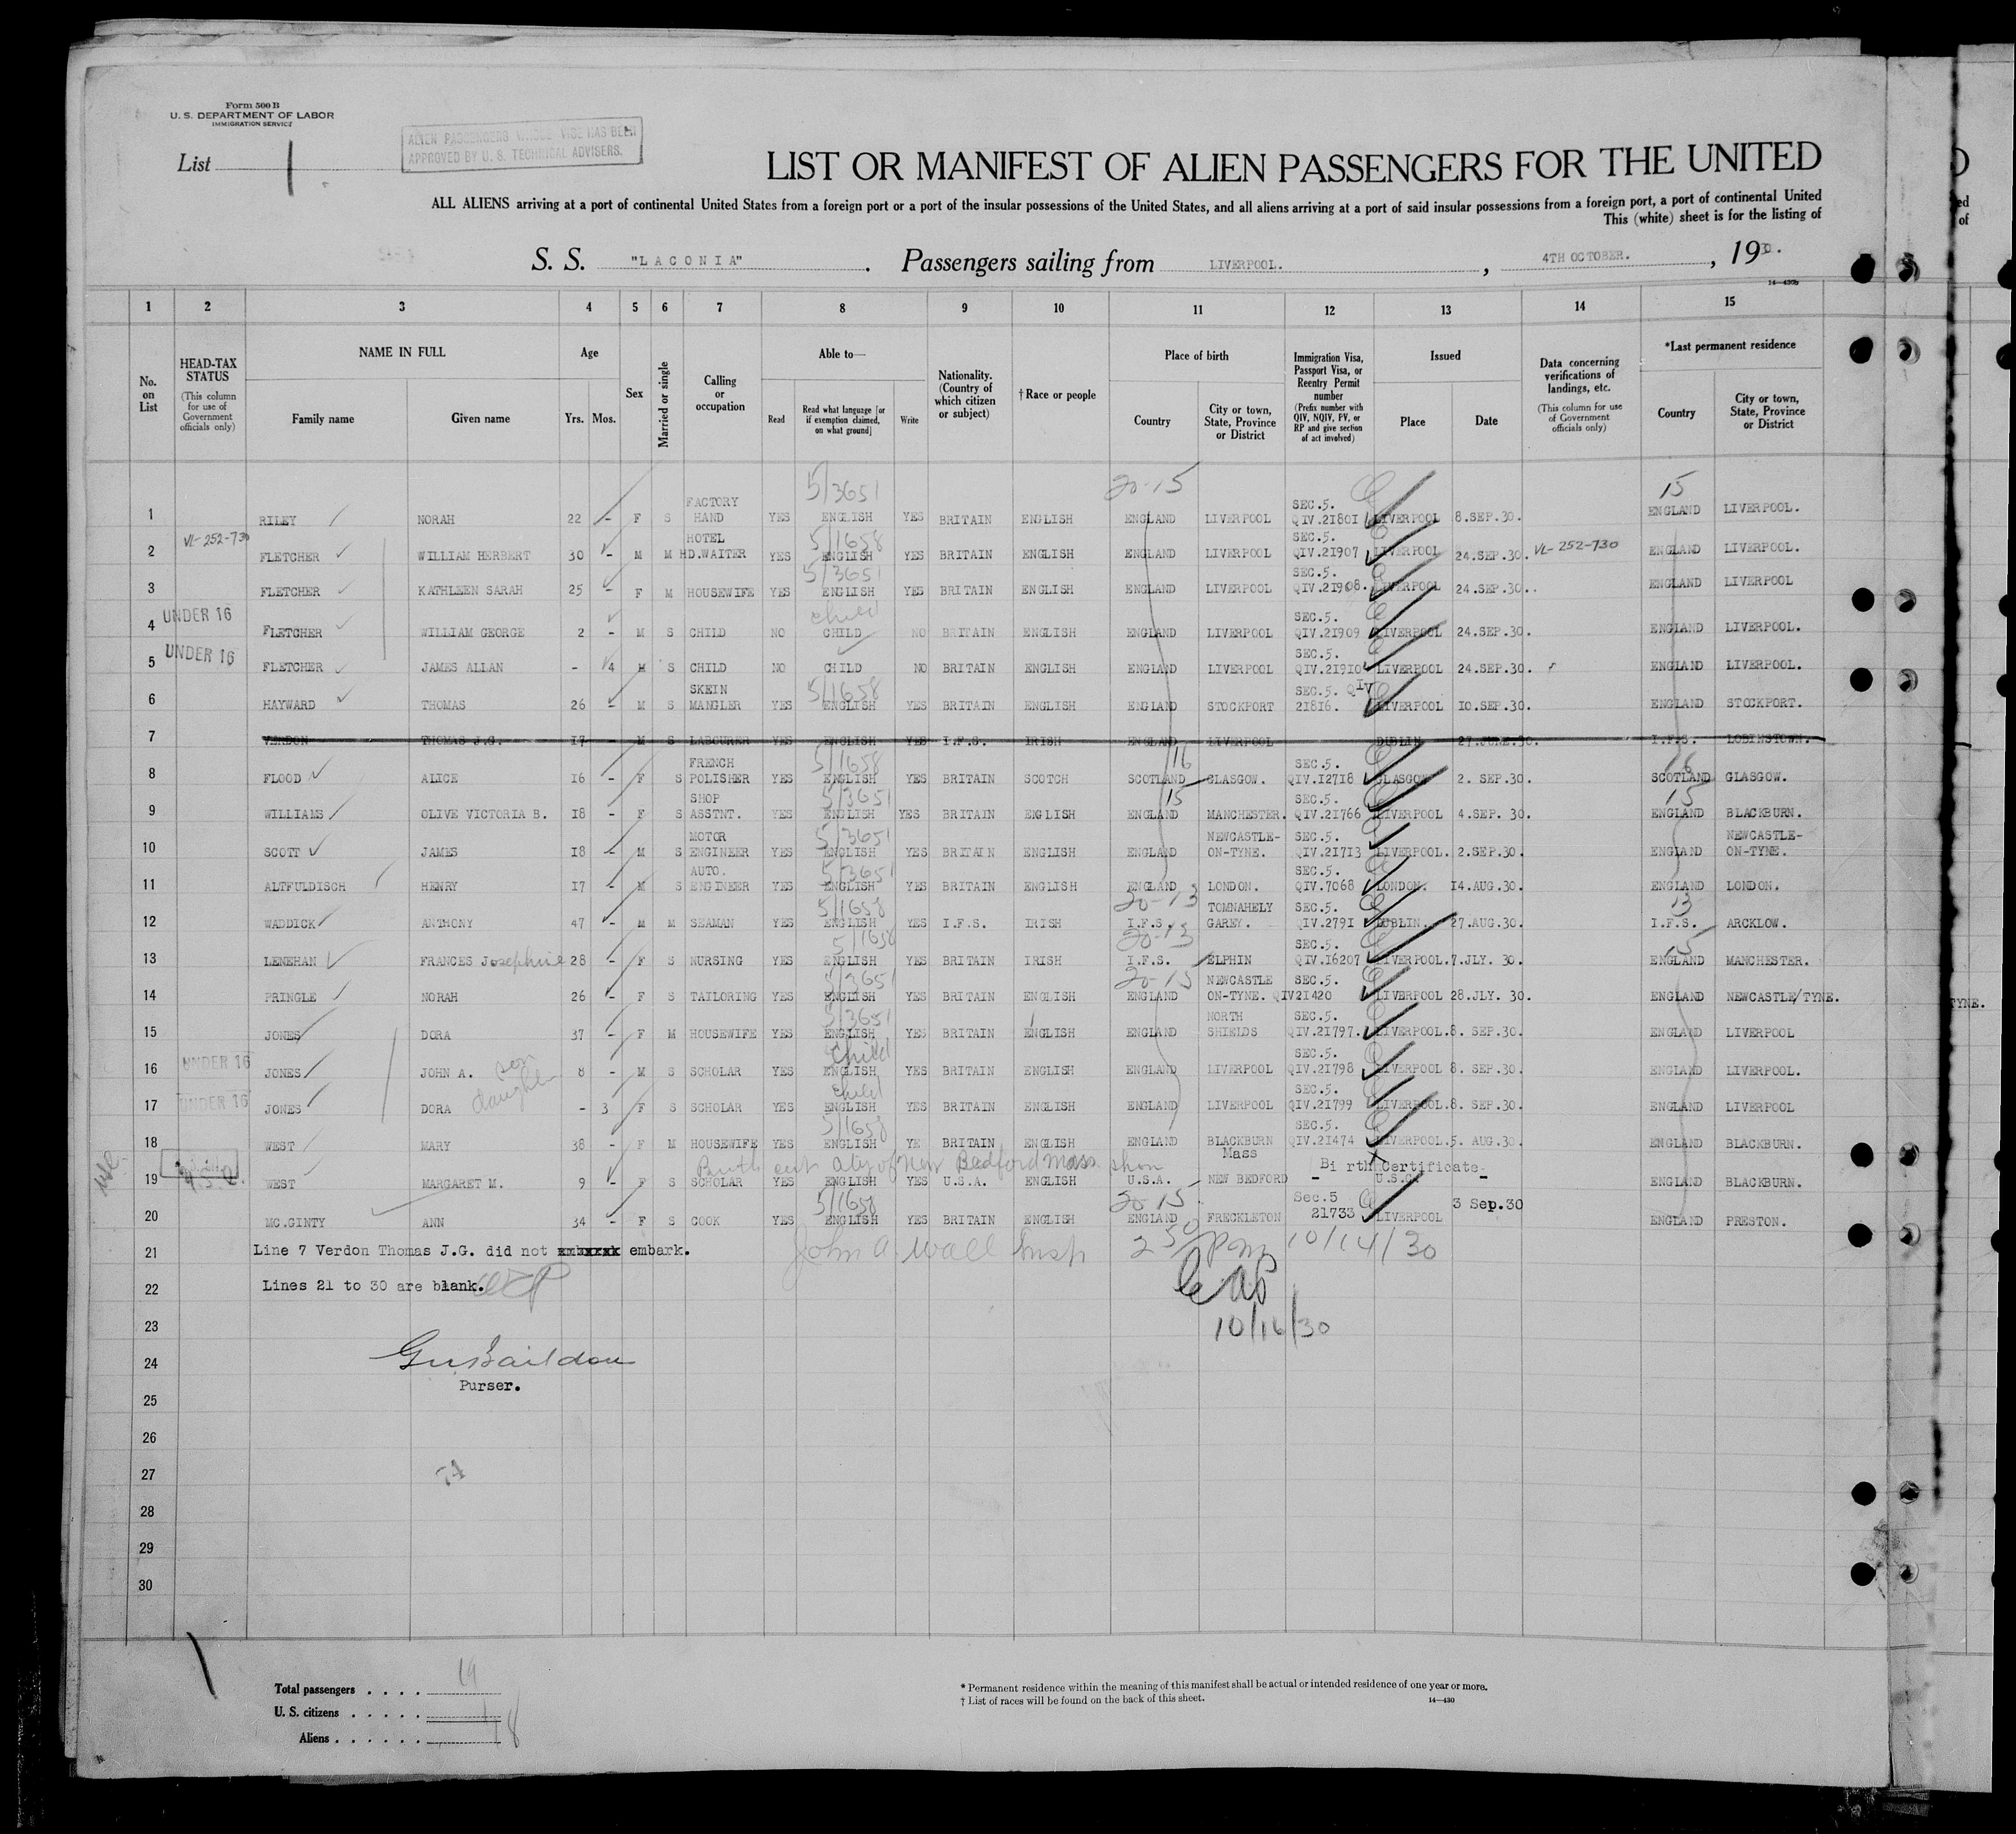 Form 500 B
U. S. DEPARTMENT OF LABOR
IMMIGRATION SERVICE
List 1
ALIEN PASSENGERS WHOSE VISE HAS BEEN
APPROVED BY U. S. TECHNICAL ADVISERS.
LIST OR MANIFEST OF ALIEN PASSENGERS FOR THE UNITED
ALL ALIENS arriving at a port of continental United States from a foreign port or a port of the insular possessions of the United States, and all aliens arriving at a port of said insular possessions from a foreign port, a port of continental United
This (white) sheet is for the listing of
S. S. "LACONIA". Passengers sailing from LIVERPOOL., 4TH OCTOBER., 19
14—430b
1 2 3 4 5 6 7 8 9 10 11 12 13 14 15
No. on List
HEAD-TAX STATUS (This column for use of Government officials only)
NAME IN FULL Family name Given name
Age Yrs. Mos.
Sex
Married or single
Calling or occupation
Able to— Read Read what language [or if exemption claimed, on what ground] Write
Nationality. (Country of which citizen or subject)
† Race or people
Place of birth Country City or town, State, Province or District
Immigration Visa, Passport Visa, or Reentry Permit number (Prefix number with QIV, NQIV, PV, or RP and give section of act involved)
Issued Place Date
Data concerning verifications of landings, etc. (This column for use of Government officials only)
*Last permanent residence Country City or town, State, Province or District
5/3651 20-15 15
1 RILEY NORAH 22 - F S FACTORY HAND YES ENGLISH YES BRITAIN ENGLISH ENGLAND LIVERPOOL SEC.5. QIV.21801 LIVERPOOL 8.SEP.30. ENGLAND LIVERPOOL.
VL-252-730 5/1658
2 FLETCHER WILLIAM HERBERT 30 - M M HOTEL HD.WAITER YES ENGLISH YES BRITAIN ENGLISH ENGLAND LIVERPOOL SEC.5. QIV.21907 LIVERPOOL 24.SEP.30. VL-252-730 ENGLAND LIVERPOOL.
5/3651
3 FLETCHER KATHLEEN SARAH 25 - F M HOUSEWIFE YES ENGLISH YES BRITAIN ENGLISH ENGLAND LIVERPOOL SEC.5. QIV.21908. LIVERPOOL 24.SEP.30.. ENGLAND LIVERPOOL
UNDER 16 child
4 FLETCHER WILLIAM GEORGE 2 - M S CHILD NO CHILD NO BRITAIN ENGLISH ENGLAND LIVERPOOL SEC.5. QIV.21909 LIVERPOOL 24.SEP.30. ENGLAND LIVERPOOL.
UNDER 16
5 FLETCHER JAMES ALLAN - 4 M S CHILD NO CHILD NO BRITAIN ENGLISH ENGLAND LIVERPOOL SEC.5. QIV.21910 LIVERPOOL 24.SEP.30. ENGLAND LIVERPOOL.
5/1658
6 HAYWARD THOMAS 26 - M S SKEIN MANGLER YES ENGLISH YES BRITAIN ENGLISH ENGLAND STOCKPORT SEC.5. QIV 21816. LIVERPOOL 10.SEP.30. ENGLAND STOCKPORT.
7 VERDON THOMAS J.G. 17 - M S LABOURER YES ENGLISH YES I.F.S. IRISH ENGLAND LIVERPOOL DUBLIN 27.JUNE.30. I.F.S. LOBINSTOWN.
5/1658 16 16
8 FLOOD ALICE 16 - F S FRENCH POLISHER YES ENGLISH YES BRITAIN SCOTCH SCOTLAND GLASGOW. SEC.5. QIV.12718 GLASGOW 2. SEP.30. SCOTLAND GLASGOW.
5/3651 15 15
9 WILLIAMS OLIVE VICTORIA B. 18 - F S SHOP ASSTNT. YES ENGLISH YES BRITAIN ENGLISH ENGLAND MANCHESTER. SEC.5. QIV.21766 LIVERPOOL 4.SEP. 30. ENGLAND BLACKBURN.
5/3651
10 SCOTT JAMES 18 - M S MOTOR ENGINEER YES ENGLISH YES BRITAIN ENGLISH ENGLAND NEWCASTLE-ON-TYNE. SEC.5. QIV.21713 LIVERPOOL. 2.SEP.30. ENGLAND NEWCASTLE-ON-TYNE.
5/3651
11 ALTFULDISCH HENRY 17 - M S AUTO. ENGINEER YES ENGLISH YES BRITAIN ENGLISH ENGLAND LONDON. SEC.5. QIV.7068 LONDON. 14.AUG.30. ENGLAND LONDON.
5/1658 20-13 13
12 WADDICK ANTHONY 47 - M M SEAMAN YES ENGLISH YES I.F.S. IRISH I.F.S. TOMNAHELY GAREY. SEC.5. QIV.2791 DUBLIN. 27.AUG.30. I.F.S. ARCKLOW.
5/1658 20-13 15
13 LENEHAN FRANCES Josephine 28 - F S NURSING YES ENGLISH YES BRITAIN IRISH I.F.S. ELPHIN SEC.5. QIV.16207 LIVERPOOL. 7.JLY. 30. ENGLAND MANCHESTER.
5/3651 20-15
14 PRINGLE NORAH 26 - F S TAILORING YES ENGLISH YES BRITAIN ENGLISH ENGLAND NEWCASTLE ON-TYNE. SEC.5. QIV21420 LIVERPOOL 28.JLY. 30. ENGLAND NEWCASTLE/TYNE.
5/3651
15 JONES DORA 37 - F M HOUSEWIFE YES ENGLISH YES BRITAIN ENGLISH ENGLAND NORTH SHIELDS SEC.5. QIV.21797. LIVERPOOL. 8. SEP.30. ENGLAND LIVERPOOL
UNDER 16 son child
16 JONES JOHN A. 8 - M S SCHOLAR YES ENGLISH YES BRITAIN ENGLISH ENGLAND LIVERPOOL SEC.5. QIV.21798 LIVERPOOL 8. SEP.30. ENGLAND LIVERPOOL.
UNDER 16 daughter child
17 JONES DORA - 3 F S SCHOLAR YES ENGLISH YES BRITAIN ENGLISH ENGLAND LIVERPOOL SEC.5. QIV.21799 LIVERPOOL. 8. SEP.30. ENGLAND LIVERPOOL
5/1658
18 WEST MARY 38 - F M HOUSEWIFE YES ENGLISH YE BRITAIN ENGLISH ENGLAND BLACKBURN SEC.5. QIV.21474 LIVERPOOL. 5. AUG.30. ENGLAND BLACKBURN.
Birth cert City of New Bedford Mass shown
19 WEST MARGARET M. 9 - F S SCHOLAR YES ENGLISH YES U.S.A. ENGLISH U.S.A. Mass NEW BEDFORD - Birth Certificate U.S.C. - ENGLAND BLACKBURN.
5/1658 20-15
20 MC.GINTY ANN 34 - F S COOK YES ENGLISH YES BRITAIN ENGLISH ENGLAND FRECKLETON Sec.5 21733 LIVERPOOL 3 Sep.30 ENGLAND PRESTON.
21 Line 7 Verdon Thomas J.G. did not embark. John A. Wall Insp 2 50 pm 10/14/30
22 Lines 21 to 30 are blank.
23 10/16/30
24
Purser.
25
26
27
28
29
30
Total passengers . . . . 19
U. S. citizens . . . . . 1
Aliens . . . . . . 18
* Permanent residence within the meaning of this manifest shall be actual or intended residence of one year or more.
† List of races will be found on the back of this sheet.
14—430